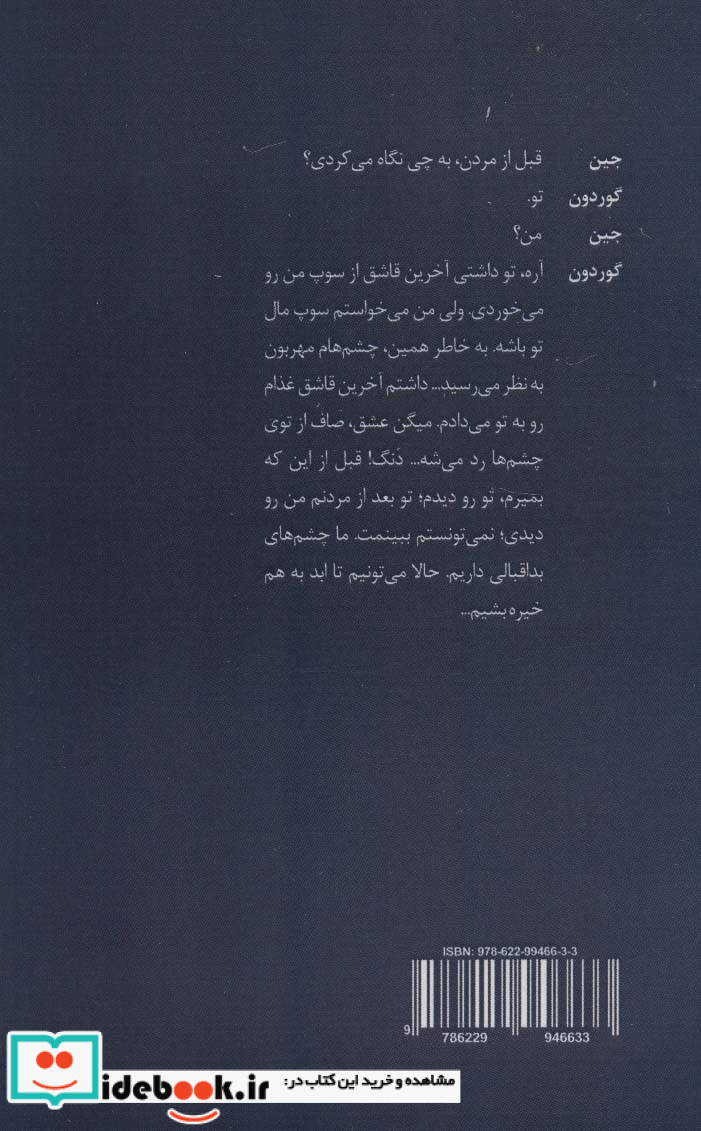 جین قبل از مردن، به چی نگاه می‌کردی؟
گوردون تو.
جین من؟
گوردون آره، تو داشتی آخرین قاشق از سوپ من رو
می‌خوردی. ولی من می‌خواستم سوپ مال
تو باشه. به خاطر همین، چشم‌هام مهربون
به نظر می‌رسید... داشتم آخرین قاشق غذام
رو به تو می‌دادم. میگن عشق، صاف از توی
چشم‌ها رد می‌شه... دَنگ! قبل از این که
بمیرم، تو رو دیدم؛ تو بعد از مردنم من رو
دیدی؛ نمی‌تونستم ببینمت. ما چشم‌های
بداقبالی داریم. حالا می‌تونیم تا ابد به هم
خیره بشیم...
ISBN: 978-622-99466-3-3
9 786229 946633
مشاهده و خرید این کتاب در:
idebook.ir